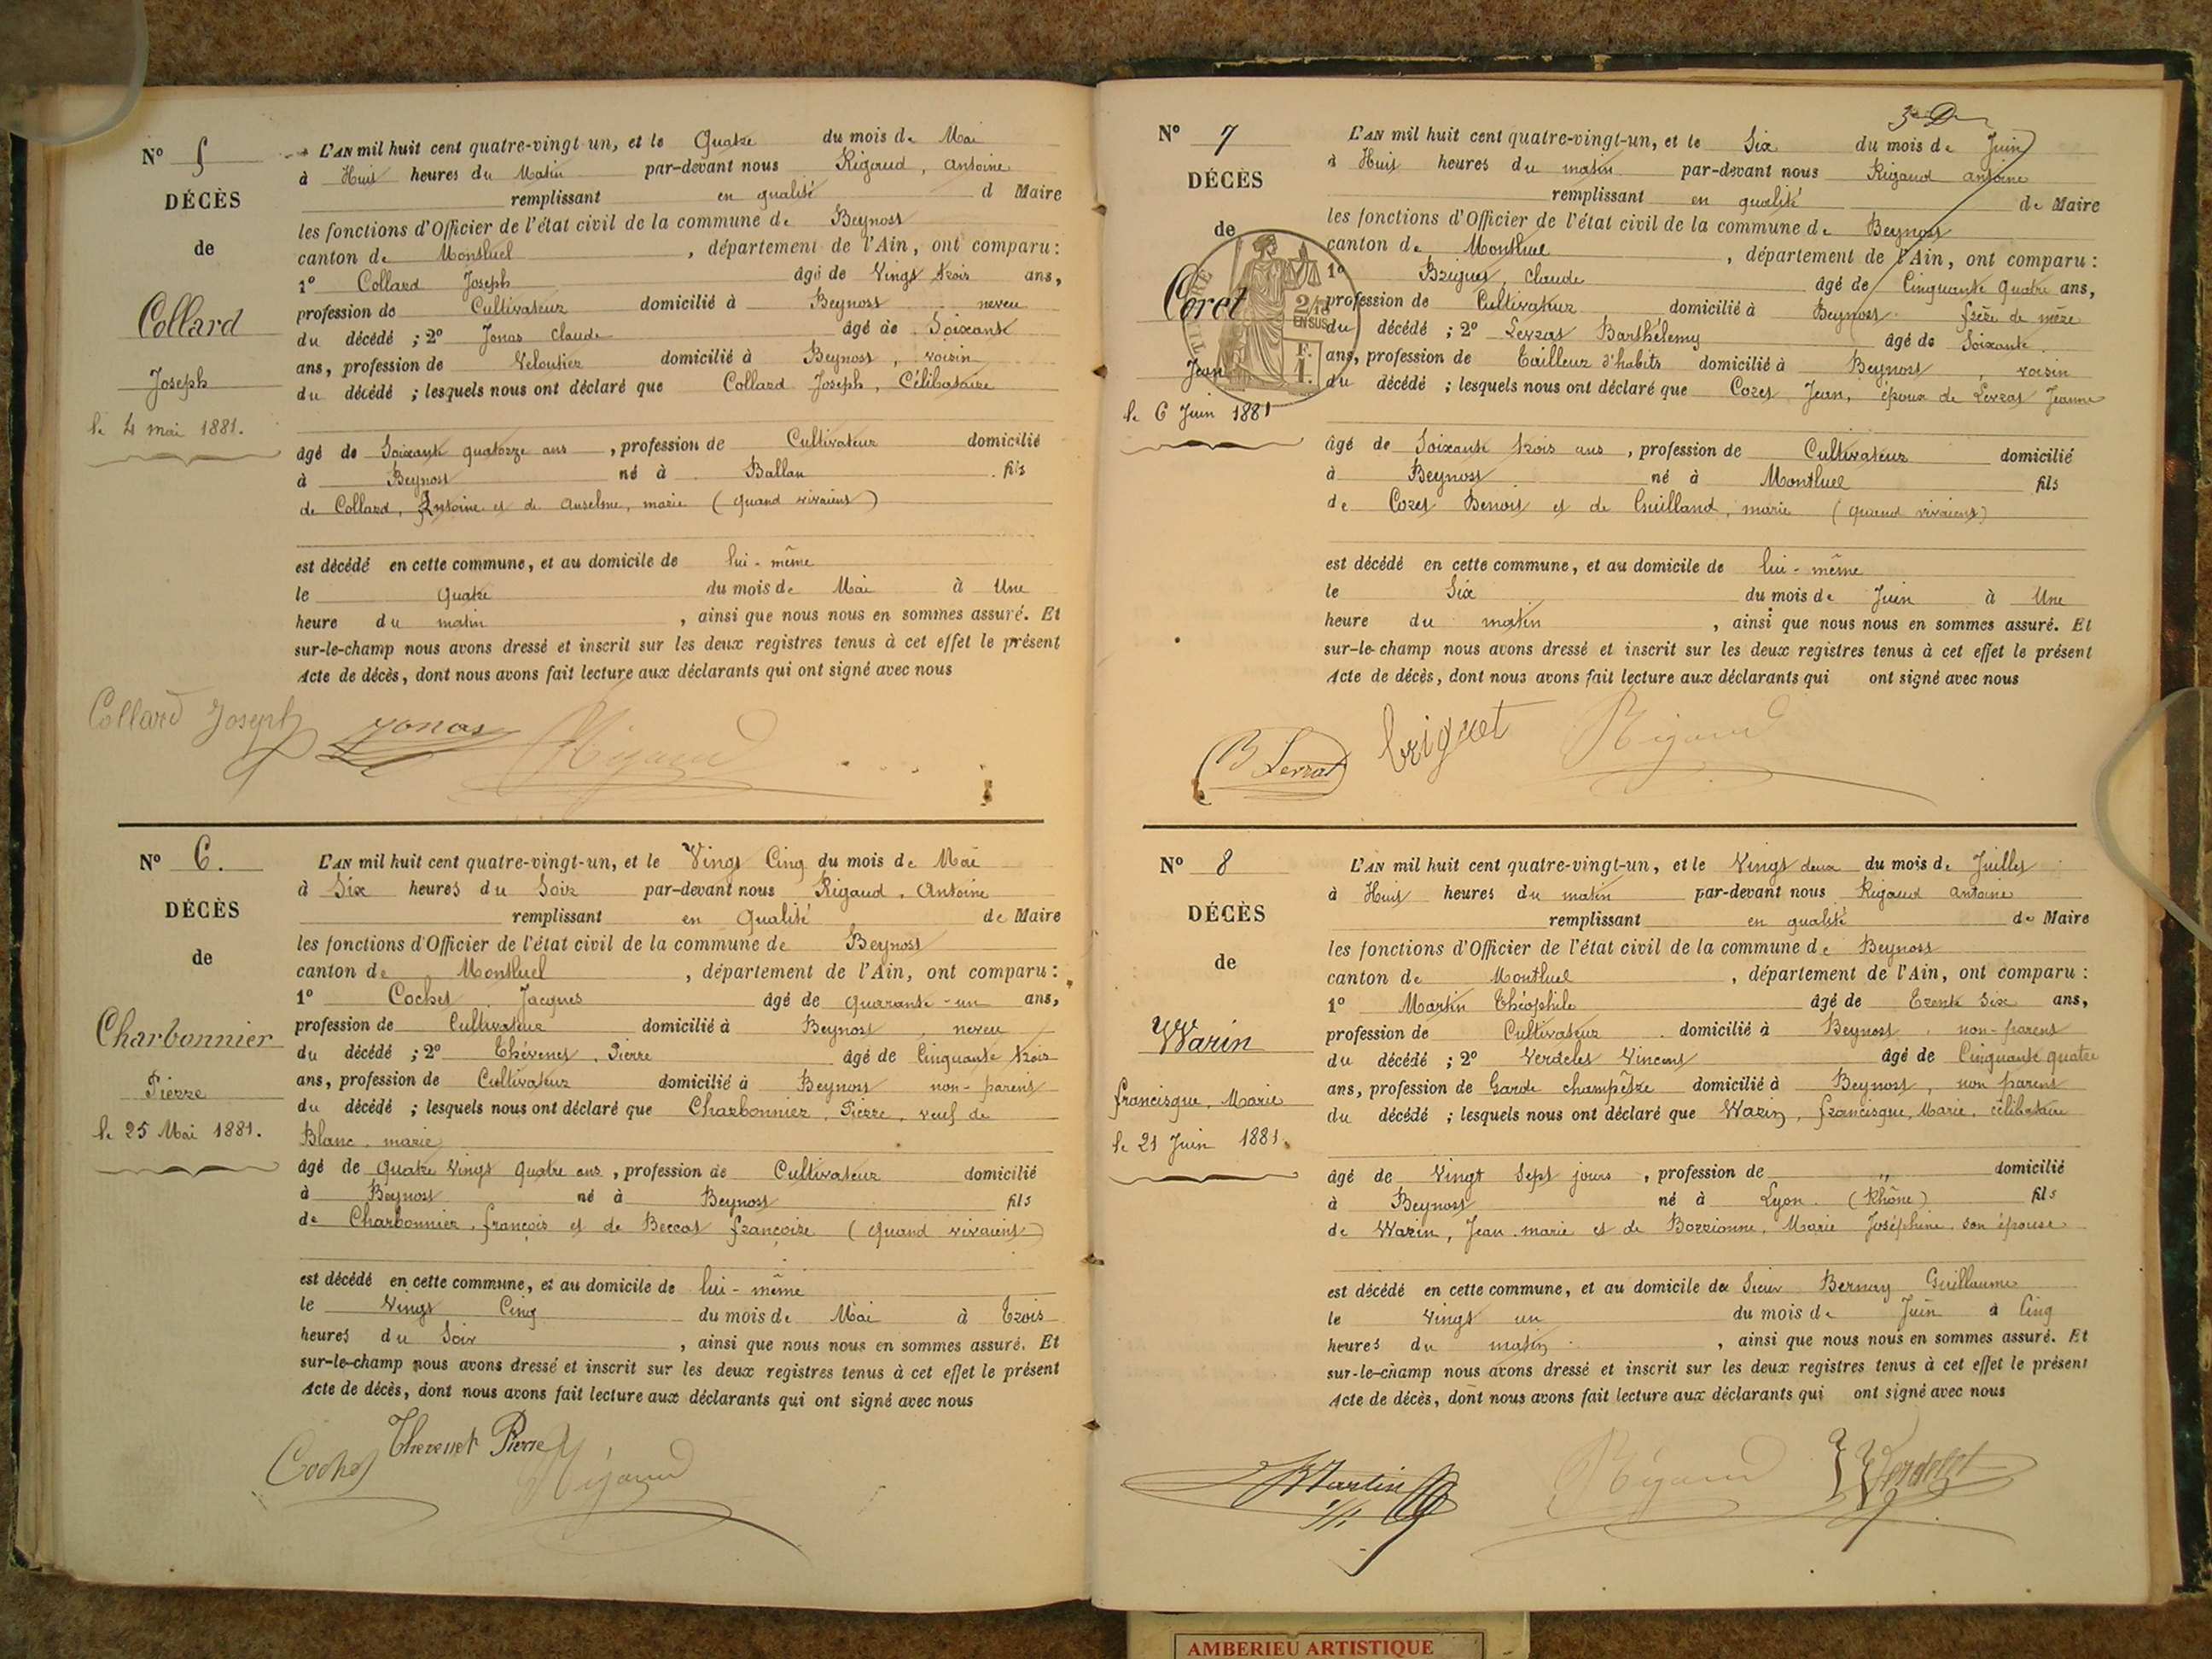 N° 5
DÉCÈS
de
Collard
Joseph
le 4 mai 1881.
L'AN mil huit cent quatre-vingt-un, et le Quatre du mois de Mai
à Huit heures du Matin par-devant nous Rigaud, Antoine
remplissant en qualité d Maire
les fonctions d'Officier de l'état civil de la commune de Beynost
canton de Montluel, département de l'Ain, ont comparu:
1° Collard Joseph âgé de Vingt trois ans,
profession de Cultivateur domicilié à Beynost neveu
du décédé ; 2° Jonas Claude âgé de Soixante
ans, profession de Veloutier domicilié à Beynost, voisin
du décédé ; lesquels nous ont déclaré que Collard Joseph, Célibataire
âgé de Soixante quatorze ans, profession de Cultivateur domicilié
à Beynost né à Ballan fils
de Collard, Antoine et de Anselme, marie (quand vivaient)
est décédé en cette commune, et au domicile de lui-même
le quatre du mois de Mai à Une
heure du matin, ainsi que nous nous en sommes assuré. Et
sur-le-champ nous avons dressé et inscrit sur les deux registres tenus à cet effet le présent
Acte de décès, dont nous avons fait lecture aux déclarants qui ont signé avec nous
Collard Joseph Jonas Rigaud
N° 6.
DÉCÈS
de
Charbonnier
Pierre
le 25 Mai 1881.
L'AN mil huit cent quatre-vingt-un, et le Vingt Cinq du mois de Mai
à Six heures du Soir par-devant nous Rigaud, Antoine
remplissant en Qualité de Maire
les fonctions d'Officier de l'état civil de la commune de Beynost
canton de Montluel, département de l'Ain, ont comparu:
1° Cochet Jacques âgé de quarante-un ans,
profession de Cultivateur domicilié à Beynost, neveu
du décédé ; 2° Thévenet, Pierre âgé de Cinquante trois
ans, profession de Cultivateur domicilié à Beynost non-parent
du décédé ; lesquels nous ont déclaré que Charbonnier, Pierre, veuf de
Blanc, marie
âgé de quatre Vingt quatre ans, profession de Cultivateur domicilié
à Beynost né à Beynost fils
de Charbonnier, françois et de Beccat françoise (quand vivaient)
est décédé en cette commune, et au domicile de lui-même
le Vingt Cinq du mois de Mai à trois
heures du Soir, ainsi que nous nous en sommes assuré. Et
sur-le-champ nous avons dressé et inscrit sur les deux registres tenus à cet effet le présent
Acte de décès, dont nous avons fait lecture aux déclarants qui ont signé avec nous
Cochet Thevenet Pierre Rigaud
3e D
N° 7
DÉCÈS
de
Coret
Jean
le 6 Juin 1881
2/10
EN SUS
F.
1.
L'AN mil huit cent quatre-vingt-un, et le Six du mois de Juin
à Huit heures du matin par-devant nous Rigaud antoine
remplissant en qualité de Maire
les fonctions d'Officier de l'état civil de la commune de Beynost
canton de Montluel, département de l'Ain, ont comparu:
1° Briguet, Claude âgé de Cinquante quatre ans,
profession de Cultivateur domicilié à Beynost frère de mère
du décédé ; 2° Levrat Barthélemy âgé de Soixante
ans, profession de Tailleur d'habits domicilié à Beynost, voisin
du décédé ; lesquels nous ont déclaré que Coret Jean, époux de Levrat Jeanne
âgé de Soixante trois ans, profession de Cultivateur domicilié
à Beynost né à Montluel fils
de Coret Benoit et de Guilland, marie (quand vivaient)
est décédé en cette commune, et au domicile de lui-même
le Six du mois de Juin à Une
heure du matin, ainsi que nous nous en sommes assuré. Et
sur-le-champ nous avons dressé et inscrit sur les deux registres tenus à cet effet le présent
Acte de décès, dont nous avons fait lecture aux déclarants qui ont signé avec nous
B Levrat briguet Rigaud
N° 8
DÉCÈS
de
Warin
francisque, Marie
le 21 Juin 1881.
L'AN mil huit cent quatre-vingt-un, et le Vingt deux du mois de Juillet
à Huit heures du matin par-devant nous Rigaud antoine
remplissant en qualité de Maire
les fonctions d'Officier de l'état civil de la commune de Beynost
canton de Montluel, département de l'Ain, ont comparu:
1° Martin Théophile âgé de Trente Six ans,
profession de Cultivateur domicilié à Beynost, non-parent
du décédé ; 2° Verdelet Vincent âgé de Cinquante quatre
ans, profession de Garde champêtre domicilié à Beynost, non parent
du décédé ; lesquels nous ont déclaré que Warin, francisque, Marie, célibataire
âgé de Vingt Sept jours, profession de " domicilié
à Beynost né à Lyon (Rhône) fils
de Warin, Jean marie et de Borrionne, Marie Joséphine son épouse
est décédé en cette commune, et au domicile du Sieur Bernay Guillaume
le Vingt un du mois de Juin à Cinq
heures du matin, ainsi que nous nous en sommes assuré. Et
sur-le-champ nous avons dressé et inscrit sur les deux registres tenus à cet effet le présent
Acte de décès, dont nous avons fait lecture aux déclarants qui ont signé avec nous
Martin Rigaud Verdelet
AMBERIEU ARTISTIQUE